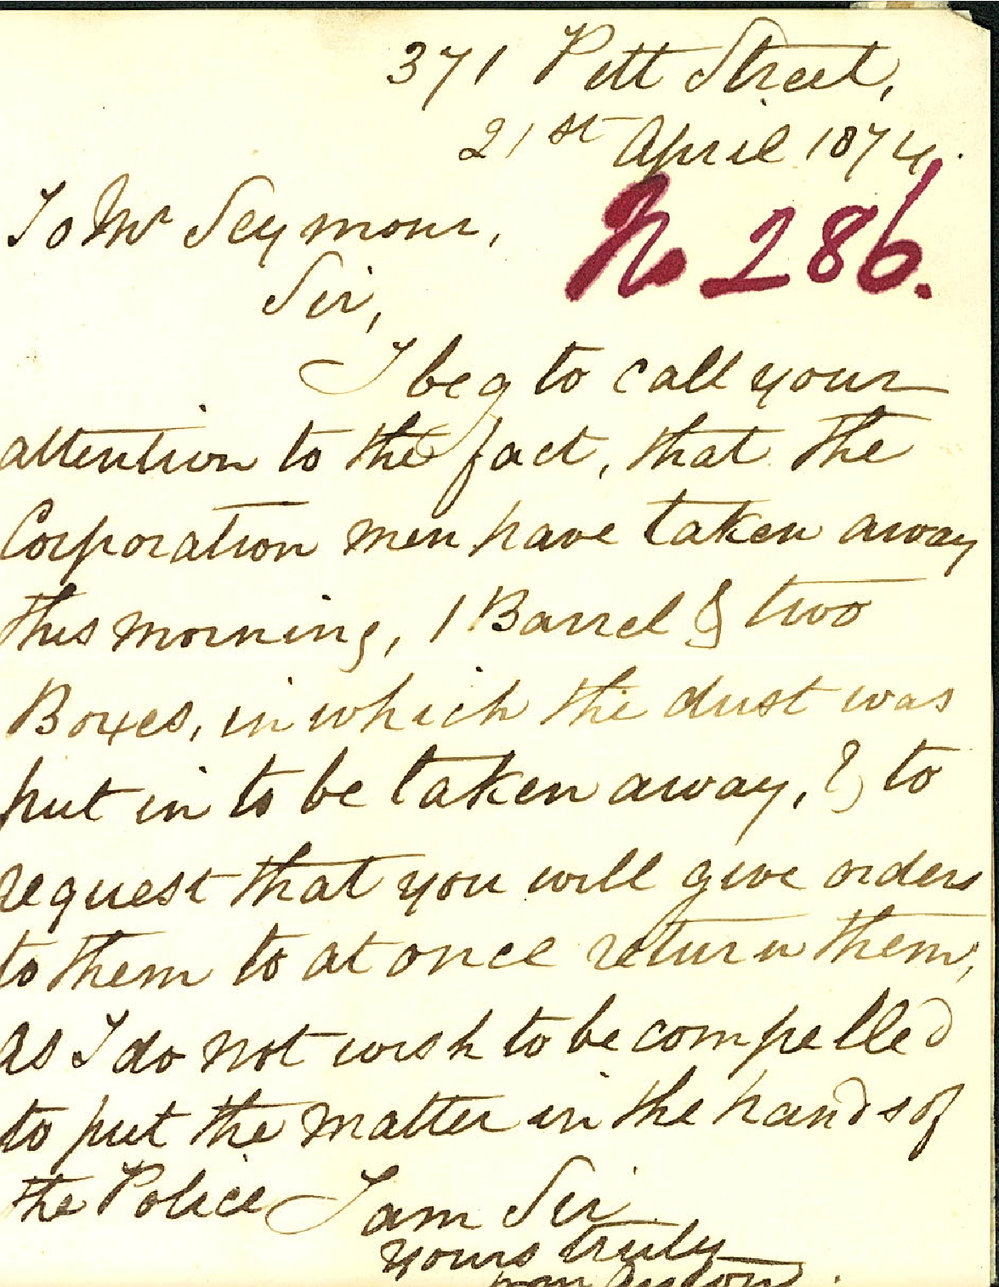 371 Pitt Street,
21st April 1874.
To Mr Seymour,
No 286.
Sir,
I beg to call your
attention to the fact, that the
Corporation men have taken away
this morning, 1 Barrel & two
Boxes, in which the dust was
put in to be taken away, & to
request that you will give orders
to them to at once return them,
as I do not wish to be compelled
to put the matter in the hands of
the Police I am Sir
yours truly